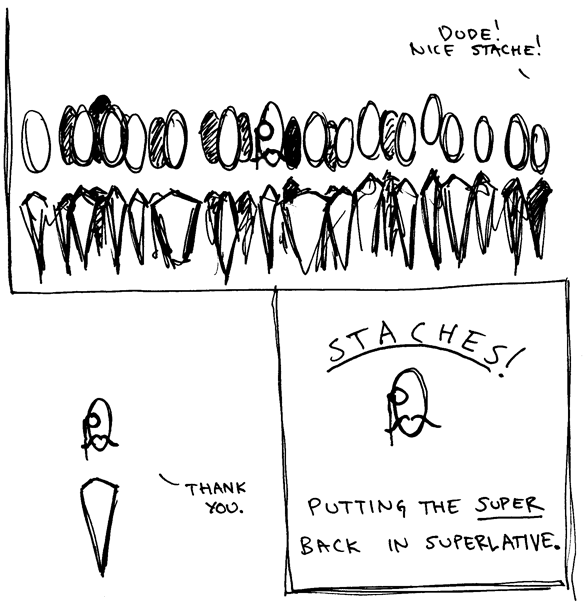 DUDE!
NICE STACHE!
THANK
YOU.
STACHES!
PUTTING THE SUPER
BACK IN SUPERLATIVE.